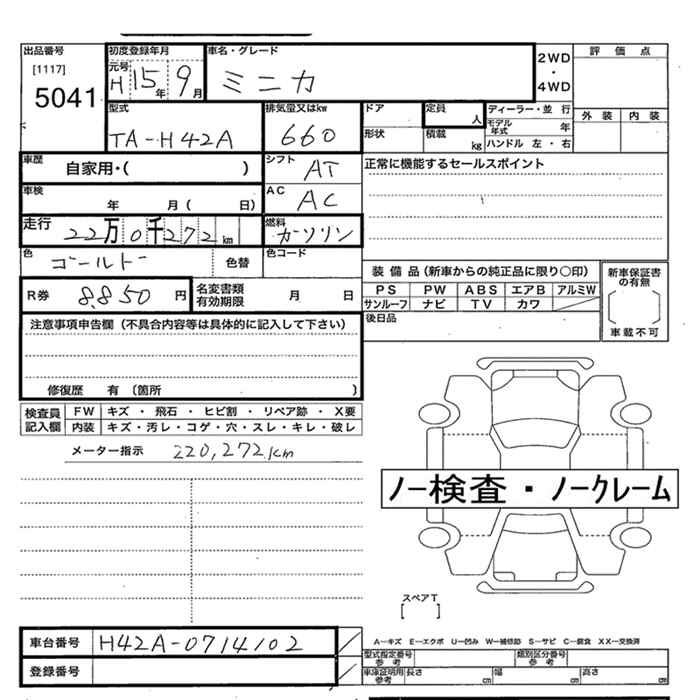 出品番号 初度登録年月 車名・グレード 2WD・4WD 評価点
[1117] 元号 H15年9月 ミニカ
5041 外装 内装
型式 排気量又はkw ドア 定員 人 ディーラー・並行
TA-H42A 660 形状 積載 kg モデル年式 年
ハンドル 左・右
車歴 自家用・( ) シフト AT 正常に機能するセールスポイント
車検 年 月( 日) AC AC
走行 22万0千272km 燃料 ガソリン
色 ゴールド 色替 色コード
装備品(新車からの純正品に限り〇印) 新車保証書の有無
R券 8.850円 名変書類有効期限 月 日 PS PW ABS エアB アルミW
サンルーフ ナビ TV カワ 車載不可
注意事項申告欄(不具合内容等は具体的に記入して下さい) 後日品
修復歴 有(箇所 )
検査員記入欄 FW キズ・飛石・ヒビ割・リペア跡・X要
内装 キズ・汚レ・コゲ・穴・スレ・キレ・破レ
メーター指示 220,272km
ノー検査・ノークレーム
スペアT
[ ]
車台番号 H42A-0714102 A―キズ E―エクボ U―凹み W―補修跡 S―サビ C―腐食 XX―交換済
登録番号 型式指定番号 参考 類別区分番号 参考
車庫証明用 参考 長さ cm 幅 cm 高さ cm